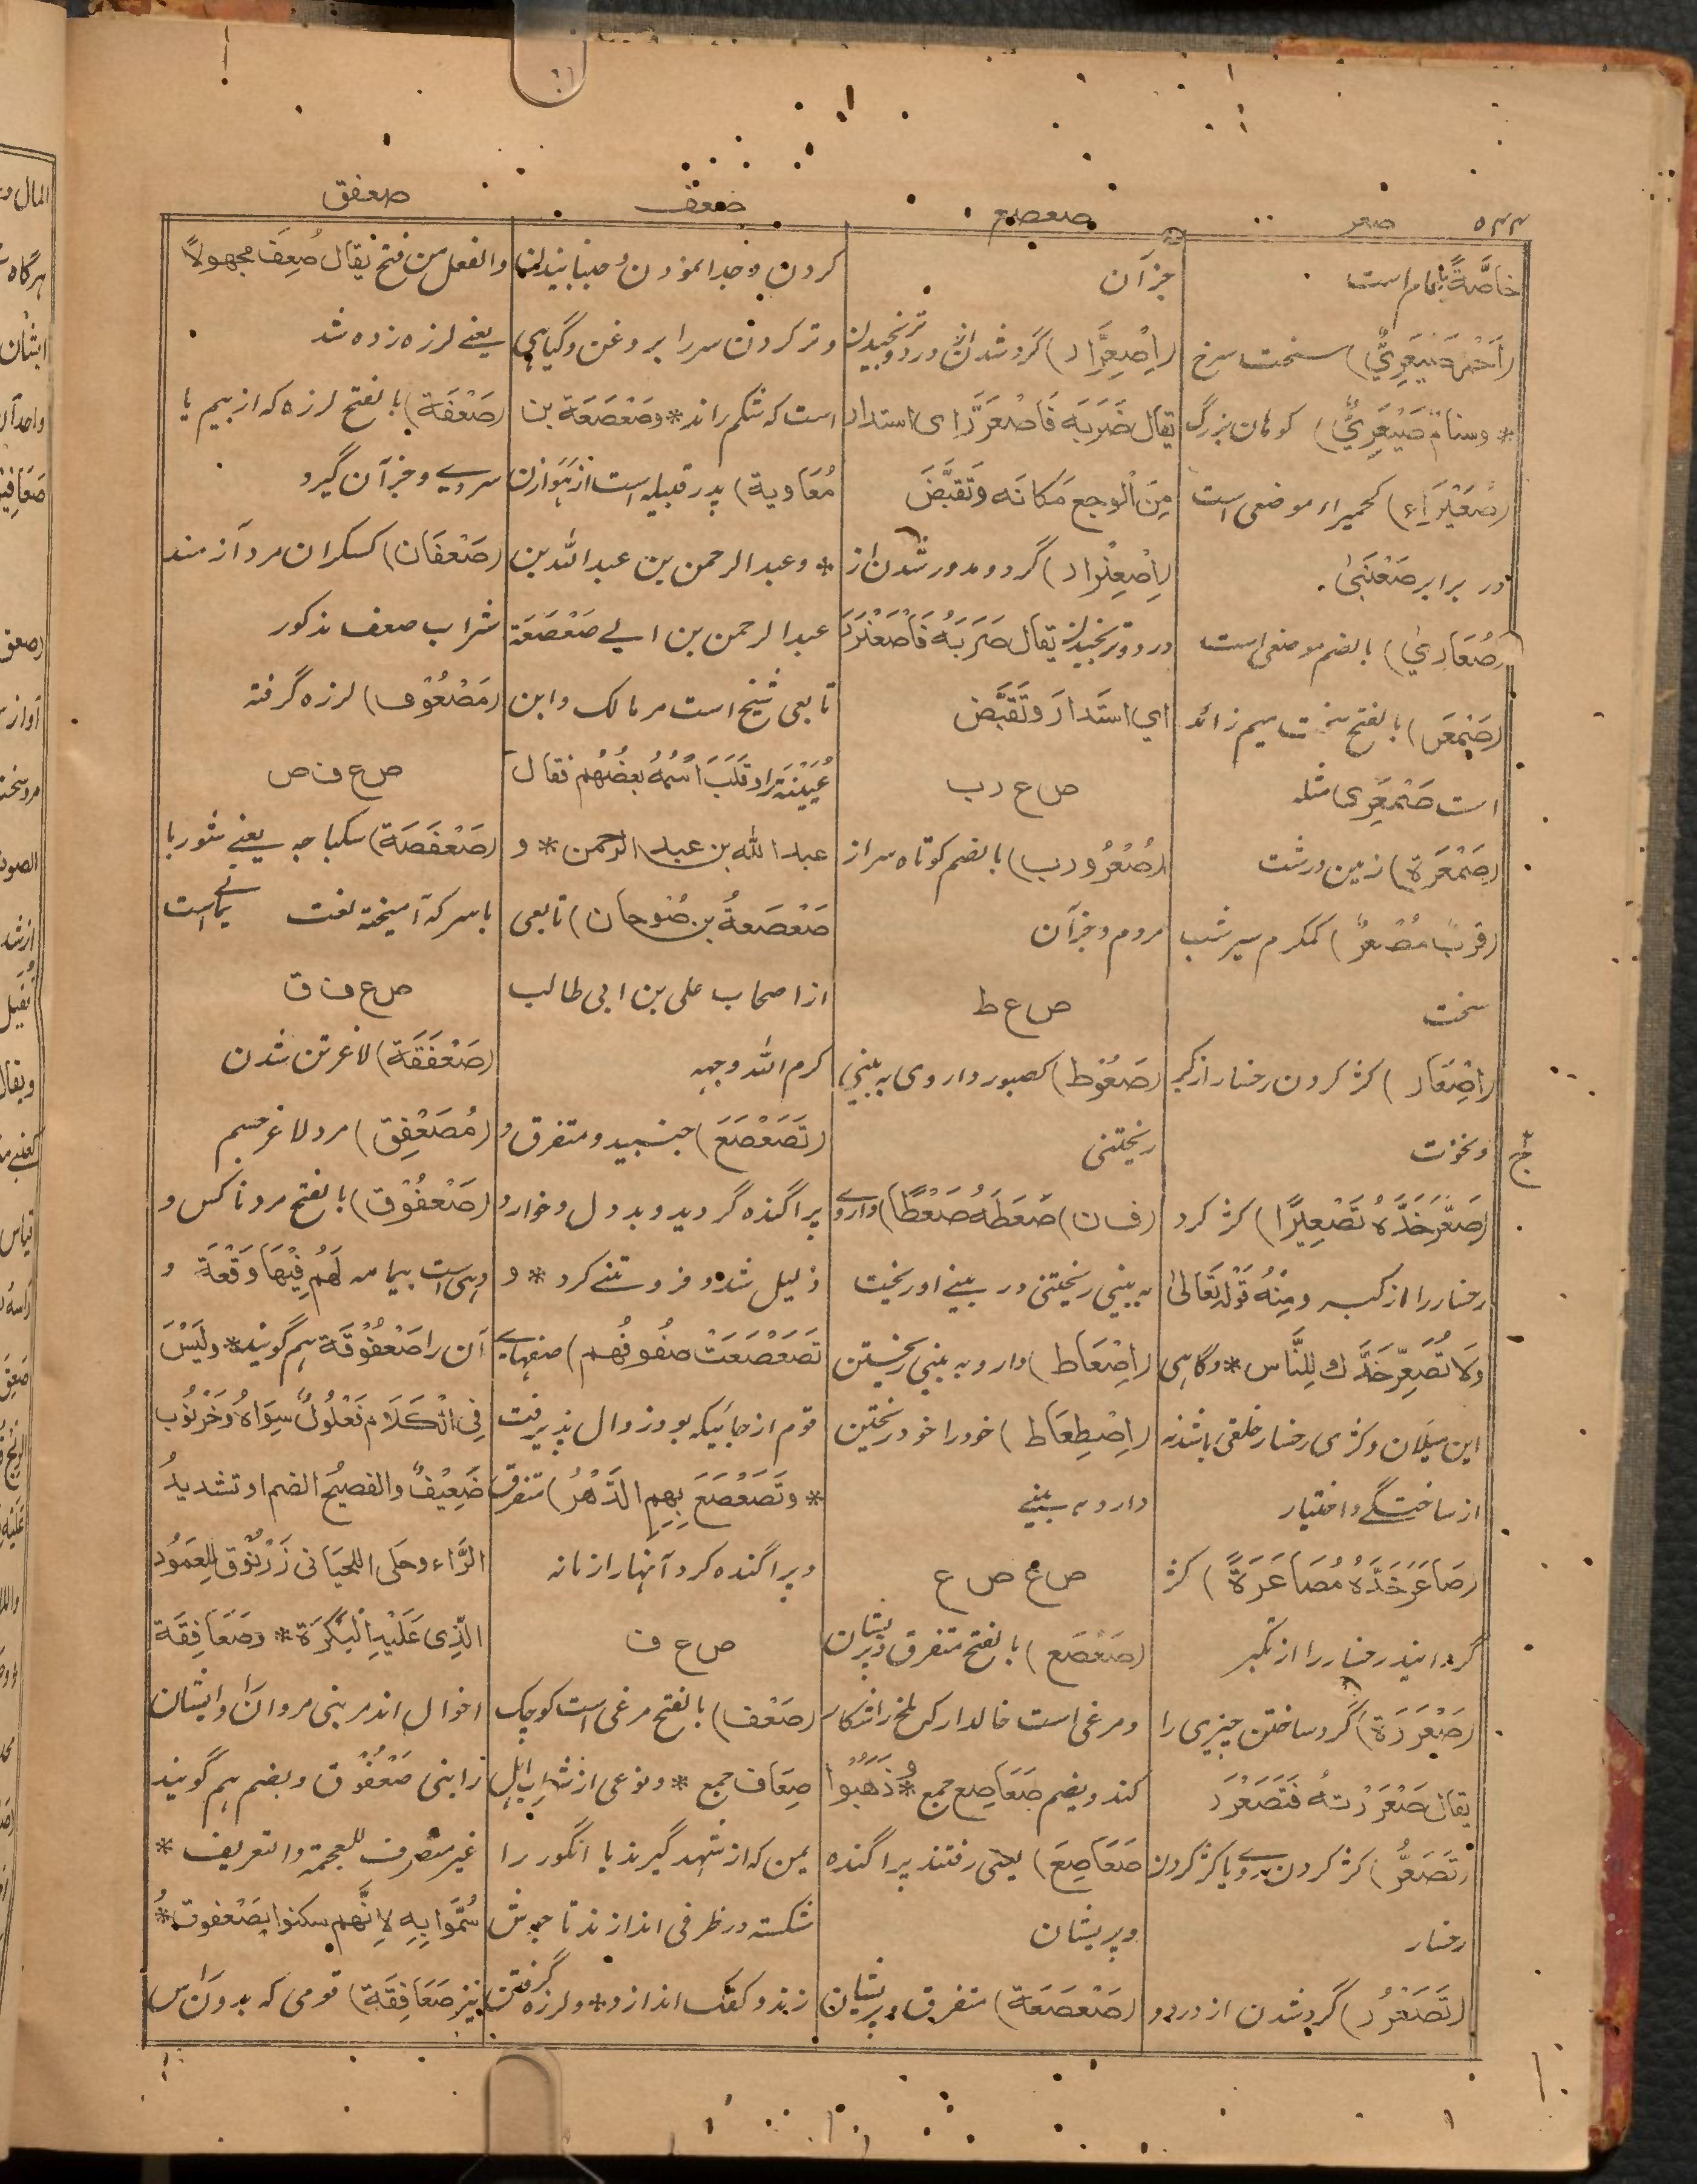 ۵۴۴ صعر صعصع صعف صعفق
خاصَّةً یا عام است
(اَحْمَرُ صَیْعَرِيٌّ) سخت سرخ
* وسنامٌ صَیْعَرِيٌّ) کوهان بزرگ
(صُعَیْرَاء) کحمیراء موضعی است
در برابر صَعْنَبیٰ.
(صُعَارِيٰ) بالضم موضعی است
(صَمْعَر) بالفتح سخت میم زائد
است صَمْعَرِی مثله
(صَمْعَرَة) زمین درشت
(قَرَبٌ مُصْعَرٌ) کمکرم سیر شب
سخت
(اِصْعَار) کژ کردن رخسار از کبر
و نخوت
(صَعَّرَ خَدَّهُ تَصْعِیْرًا) کژ کرد
رخسار را از کبر ومِنْهُ قَوْلُهُ تَعَالیٰ
وَلَا تُصَعِّرْ خَدَّكَ لِلنَّاس * وگاہی
این میلان و کژی رخسار خلقی باشد نه
از ساختگی و اختیار
(صَاعَرَ خَدَّهُ مُصَاعَرَةً) کژ
گردانید رخسار را از تکبر
(صَعْرَرَة) گرد ساختن چیزی را
یقال صَعْرَرْتهُ فَتَصَعْرَرَ
(تَصَعُّر) کژ کردن روے یا کژ کردن
رخسار
(تَصَعْرُر) گرد شدن از درد و
جز آن
(اِصْعِرَّار) گرد شدن از درد و ترنجیدن
یقال ضَرَبَه فَاصْعَرَّرَ ای استدار
مِنَ الوجع مَکانَه وَتَقَبَّضَ
(اِصْعِنْرَار) گرد و مدور شدن از
درد و ترنجیدن یقال ضَرَبَهُ فَاصْعَنْرَرَ
اي استَدارَ وتَقَبَّض
ص ع ر ب
(صُعْرُوْرب) بالضم کوتاه سر از
مردم و جز آن
ص ع ط
(صَعُوْط) کصبور داروی به بینی
ریختنی
(ف ن) صَعَطَهُ صَعْطًا) داروے
به بینی ریختنی در بینے او ریخت
(اِصْعَاط) دارو به بینی ریختن
(اِصْطِعَاط) خود را خود ریختن
دارو به بینے
ص ع ص ع
(صَعْصَع) بالفتح متفرق و پریشان
و مرغی است خالدار که ملخ را شکار
کند و بضم صَعَاصِع جمع * وذَهَبُوْا
صَعَاصِعَ) یعنی رفتند پراگنده
و پریشان
(صَعْصَعَة) متفرق و پریشان
کردن و جدا نمودن و جنبانیدن
و تر کردن سر را بروغن و گیاہی
است که شکم راند * وصَعْصَعَة بن
مُعَاویة) پدر قبیله است از هَوازن
* و عبد الرحمن بن عبد الله بن
عبد الرحمن بن ابی صَعْصَعَة
تابعی شیخ است مر مالک و ابن
عُیَیْنَة را وقَلَبَ اسْمَهُ بعضُهُم فقال
عبد الله بن عبد الرحمن * و
صَعْصَعةُ بن صُوحان) تابعی
از اصحاب علی بن ابی طالب
کرم الله وجهه
(تَصَعْصَعَ) جنبید و متفرق و
پراگنده گردید و بد دل و خوار و
ذلیل شد و فروتنے کرد * و
تَصَعْصَعَتْ صُفُوفُهم) صفہاے
قوم از جائیکه بود زوال پذیرفت
* وتَصَعْصَعَ بِهِم الدَّهْرُ) متفرق
و پراگنده کرد آنہا را زمانه
ص ع ف
(صَعْف) بالفتح مرغی است کوچک
صِعَاف جمع * و نوعی از شراب اہل
یمن که از شہد گیرند یا انگور را
شکسته در ظرفی اندازند تا جوش
زند و کفک اندازد * و لرزه گرفتن
والفعل من فتح یقال صُعِفَ مجهولاً
یعنے لرزه زده شد
(صَعْفَة) بالفتح لرزه که از بیم یا
سردی و جز آن گیرد
(صَعْفَان) کسکران مرد آزمند
شراب صعف مذکور
(مَصْعُوْف) لرزه گرفته
ص ع ف ص
(صَعْفَصَة) سکباجه یعنے شوربا
با سرکه آمیخته لغت یمانے است
ص ع ف ق
(صَعْفَقَة) لاغر تن شدن
(مُصَعْفِق) مرد لاغر جسم
(صَعْفُوْق) بالفتح مرد ناکس و
دہی است بیمامه لَهُم فِیْهَا وَقْعَة و
آن را صَعْفُوْقَة ہم گویند * ولَیْسَ
فِی الْکَلَام فَعْلُولٌ سِوَاهُ وَخَرْنُوْب
ضَعِیْفٌ والفصیحُ الضم او تشدیدُ
الرَّاء وحکی اللحیانی زَرْنُوْق لِلعَمُوْد
الَّذِی عَلَیْهِ الْبَکْرَة * وصَعَافِقَة
اخوال اند مر بنی مروان را و ایشان
را بنی صَعْفُوْق و بضم ہم گویند
غیر منصرف للعجمة والتعریف *
سُمُّوا بِهِ لِاَنَّهم سکنوا بصَعْفوق *
نیز صَعَافِقَة) قومی که بدون راس